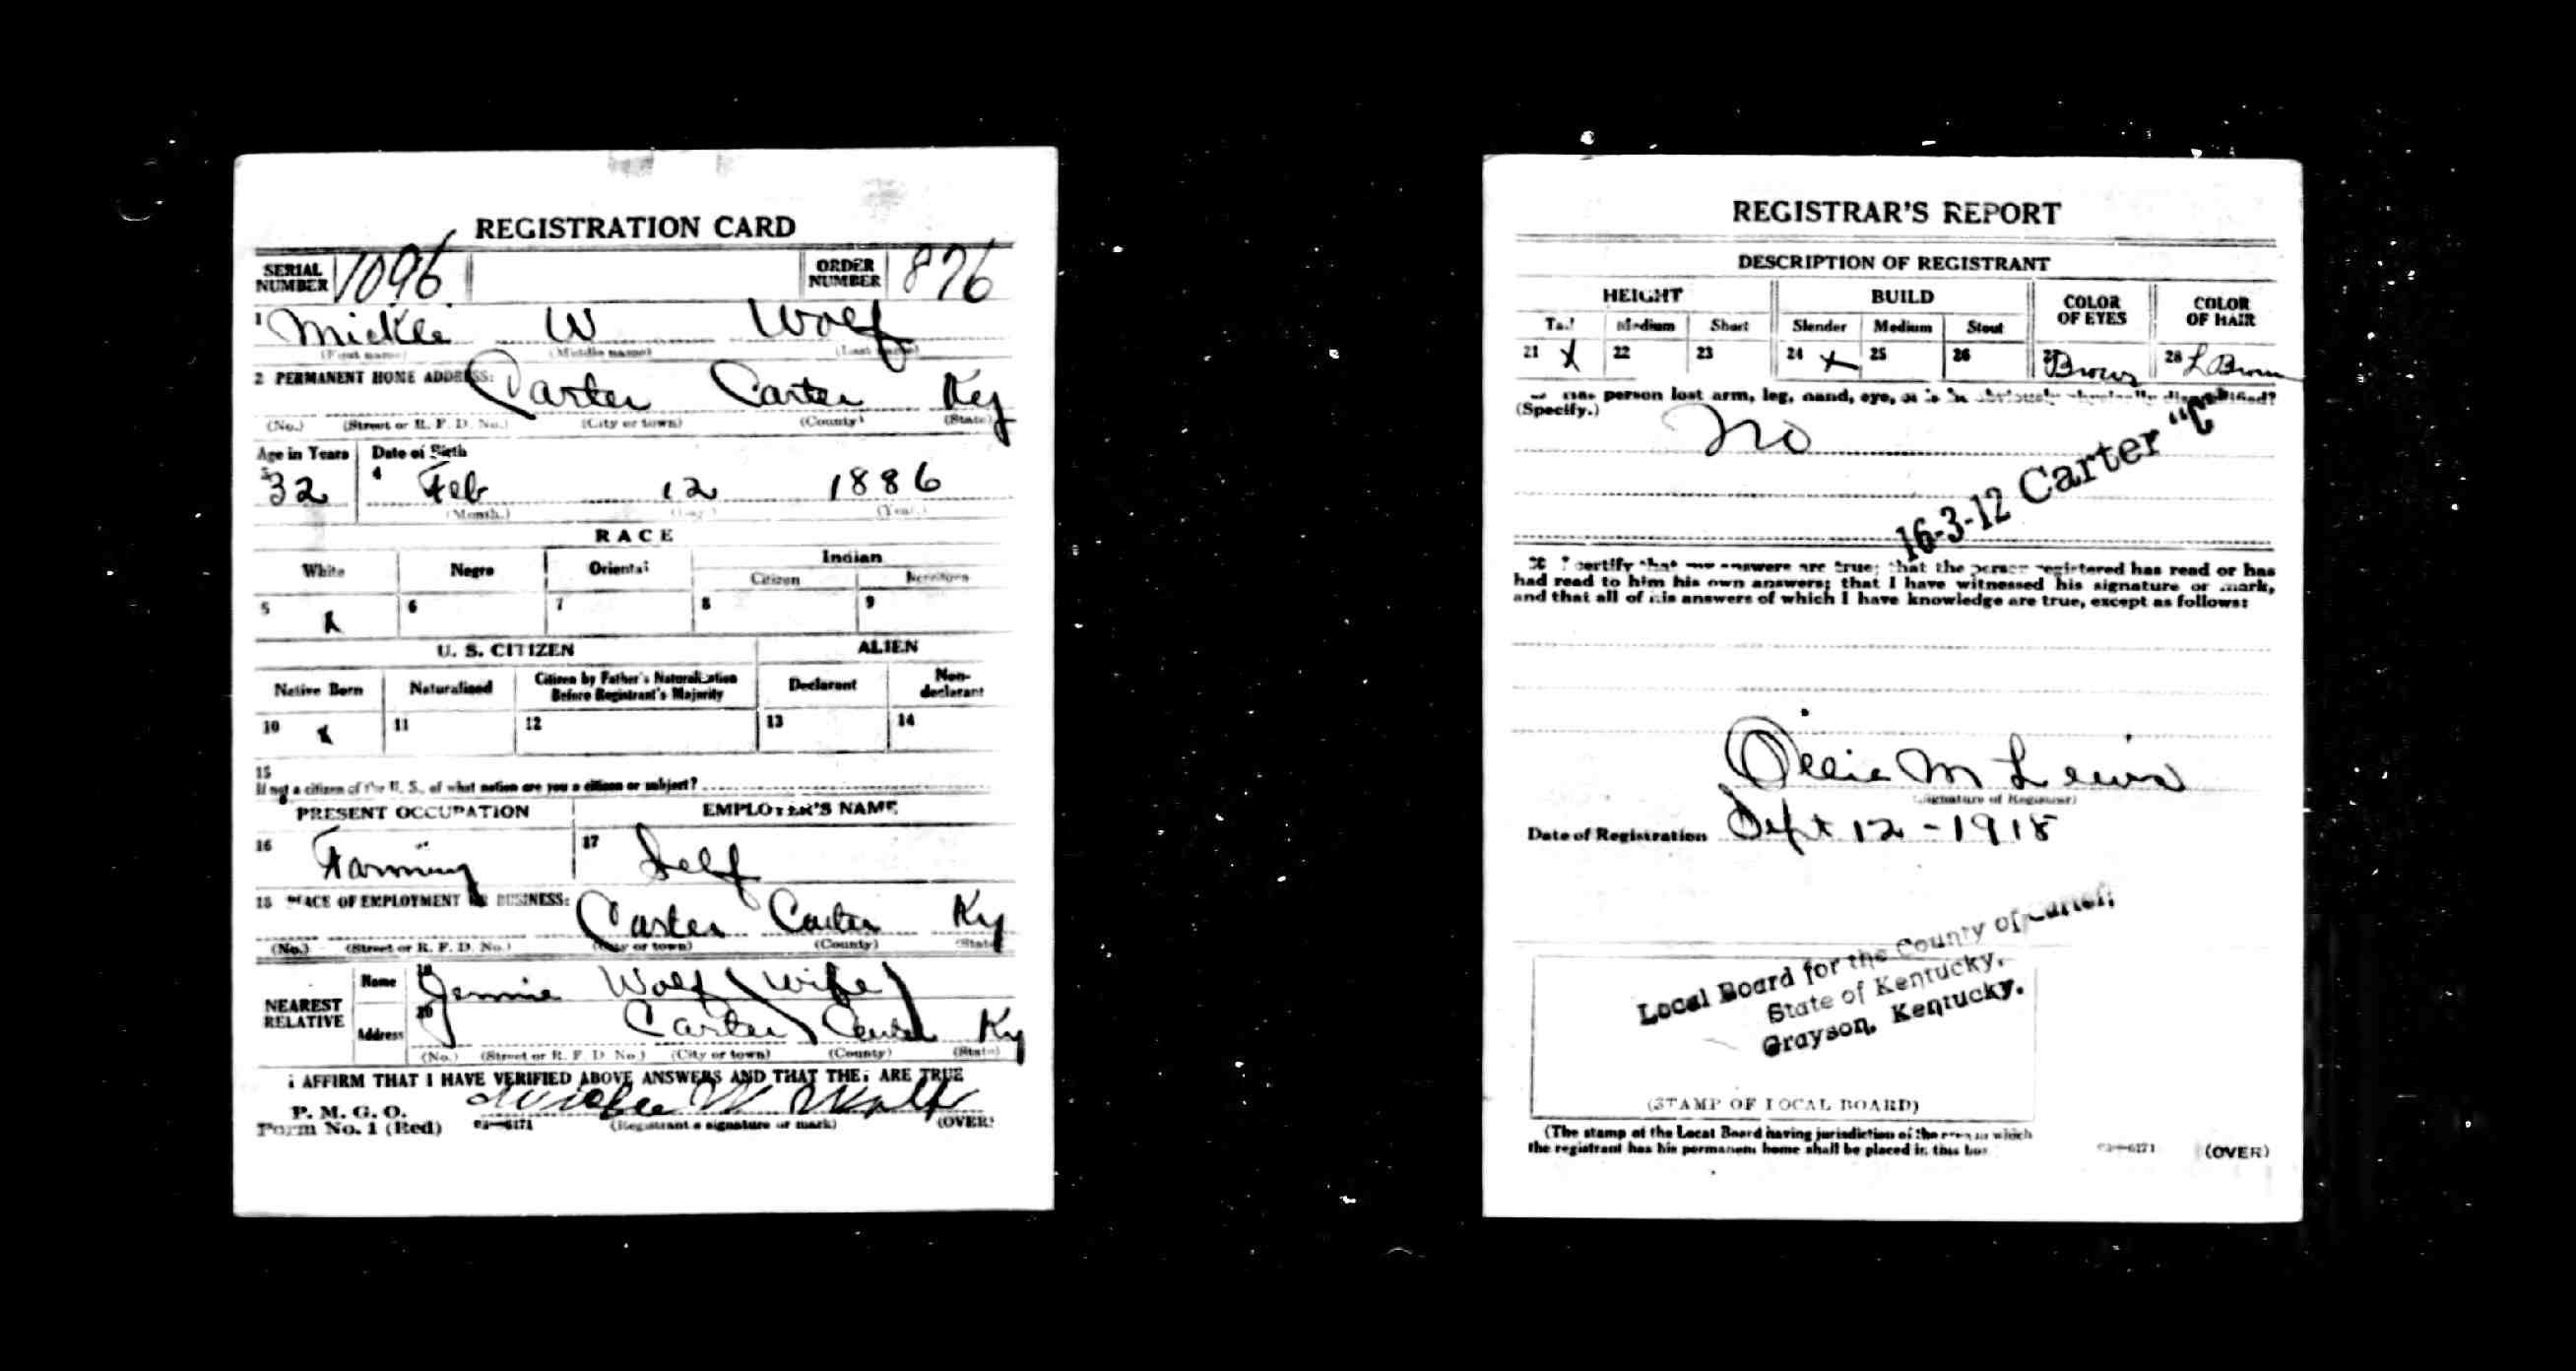 REGISTRATION CARD
SERIAL NUMBER 1096 ORDER NUMBER 876
1 Mickle W Wolf
(First name) (Middle name) (Last name)
2 PERMANENT HOME ADDRESS: Carter Carter Ky
(No.) (Street or R. F. D. No.) (City or town) (County) (State)
Age in Years Date of Birth
3 32 4 Feb 12 1886
(Month.) (Day.) (Year.)
RACE
White Negro Oriental Indian
Citizen
5 X 6 7 8 9
U. S. CITIZEN ALIEN
Native Born Naturalized Citizen by Father's Naturalization Before Registrant's Majority Declarant Non-declarant
10 X 11 12 13 14
15
If not a citizen of the U. S., of what nation are you a citizen or subject?
PRESENT OCCUPATION EMPLOYER'S NAME
16 Farming 17 Self
18 PLACE OF EMPLOYMENT OR BUSINESS: Carter Carter Ky
(No.) (Street or R. F. D. No.) (City or town) (County) (State)
NEAREST RELATIVE Name 19 Jennie Wolf (Wife)
Address 20 Carter Carter Ky
(No.) (Street or R. F. D. No.) (City or town) (County) (State)
I AFFIRM THAT I HAVE VERIFIED ABOVE ANSWERS AND THAT THEY ARE TRUE
P. M. G. O.
Form No. 1 (Red) 03—6171 Mickle W Wolf
(Registrant's signature or mark) (OVER)
REGISTRAR'S REPORT
DESCRIPTION OF REGISTRANT
HEIGHT BUILD COLOR OF EYES COLOR OF HAIR
Tall Medium Short Slender Medium Stout
21 X 22 23 24 X 25 26 27 Brown 28 L Brown
person lost arm, leg, hand, eye, or is he obviously physically disqualified?
(Specify.)
No
16-3-12 Carter "C"
30 I certify that my answers are true; that the person registered has read or has
had read to him his own answers; that I have witnessed his signature or mark,
and that all of his answers of which I have knowledge are true, except as follows:
Ollie M Lewis
(Signature of Registrar)
Date of Registration Sept 12 - 1918
Local Board for the County of Carter,
State of Kentucky,
Grayson, Kentucky.
(STAMP OF LOCAL BOARD)
(The stamp of the Local Board having jurisdiction of the area in which
the registrant has his permanent home shall be placed in this box.
03—6171 (OVER)